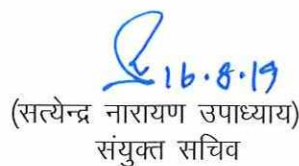 16.8.19
(सत्येन्द्र नारायण उपाध्याय)
संयुक्त सचिव